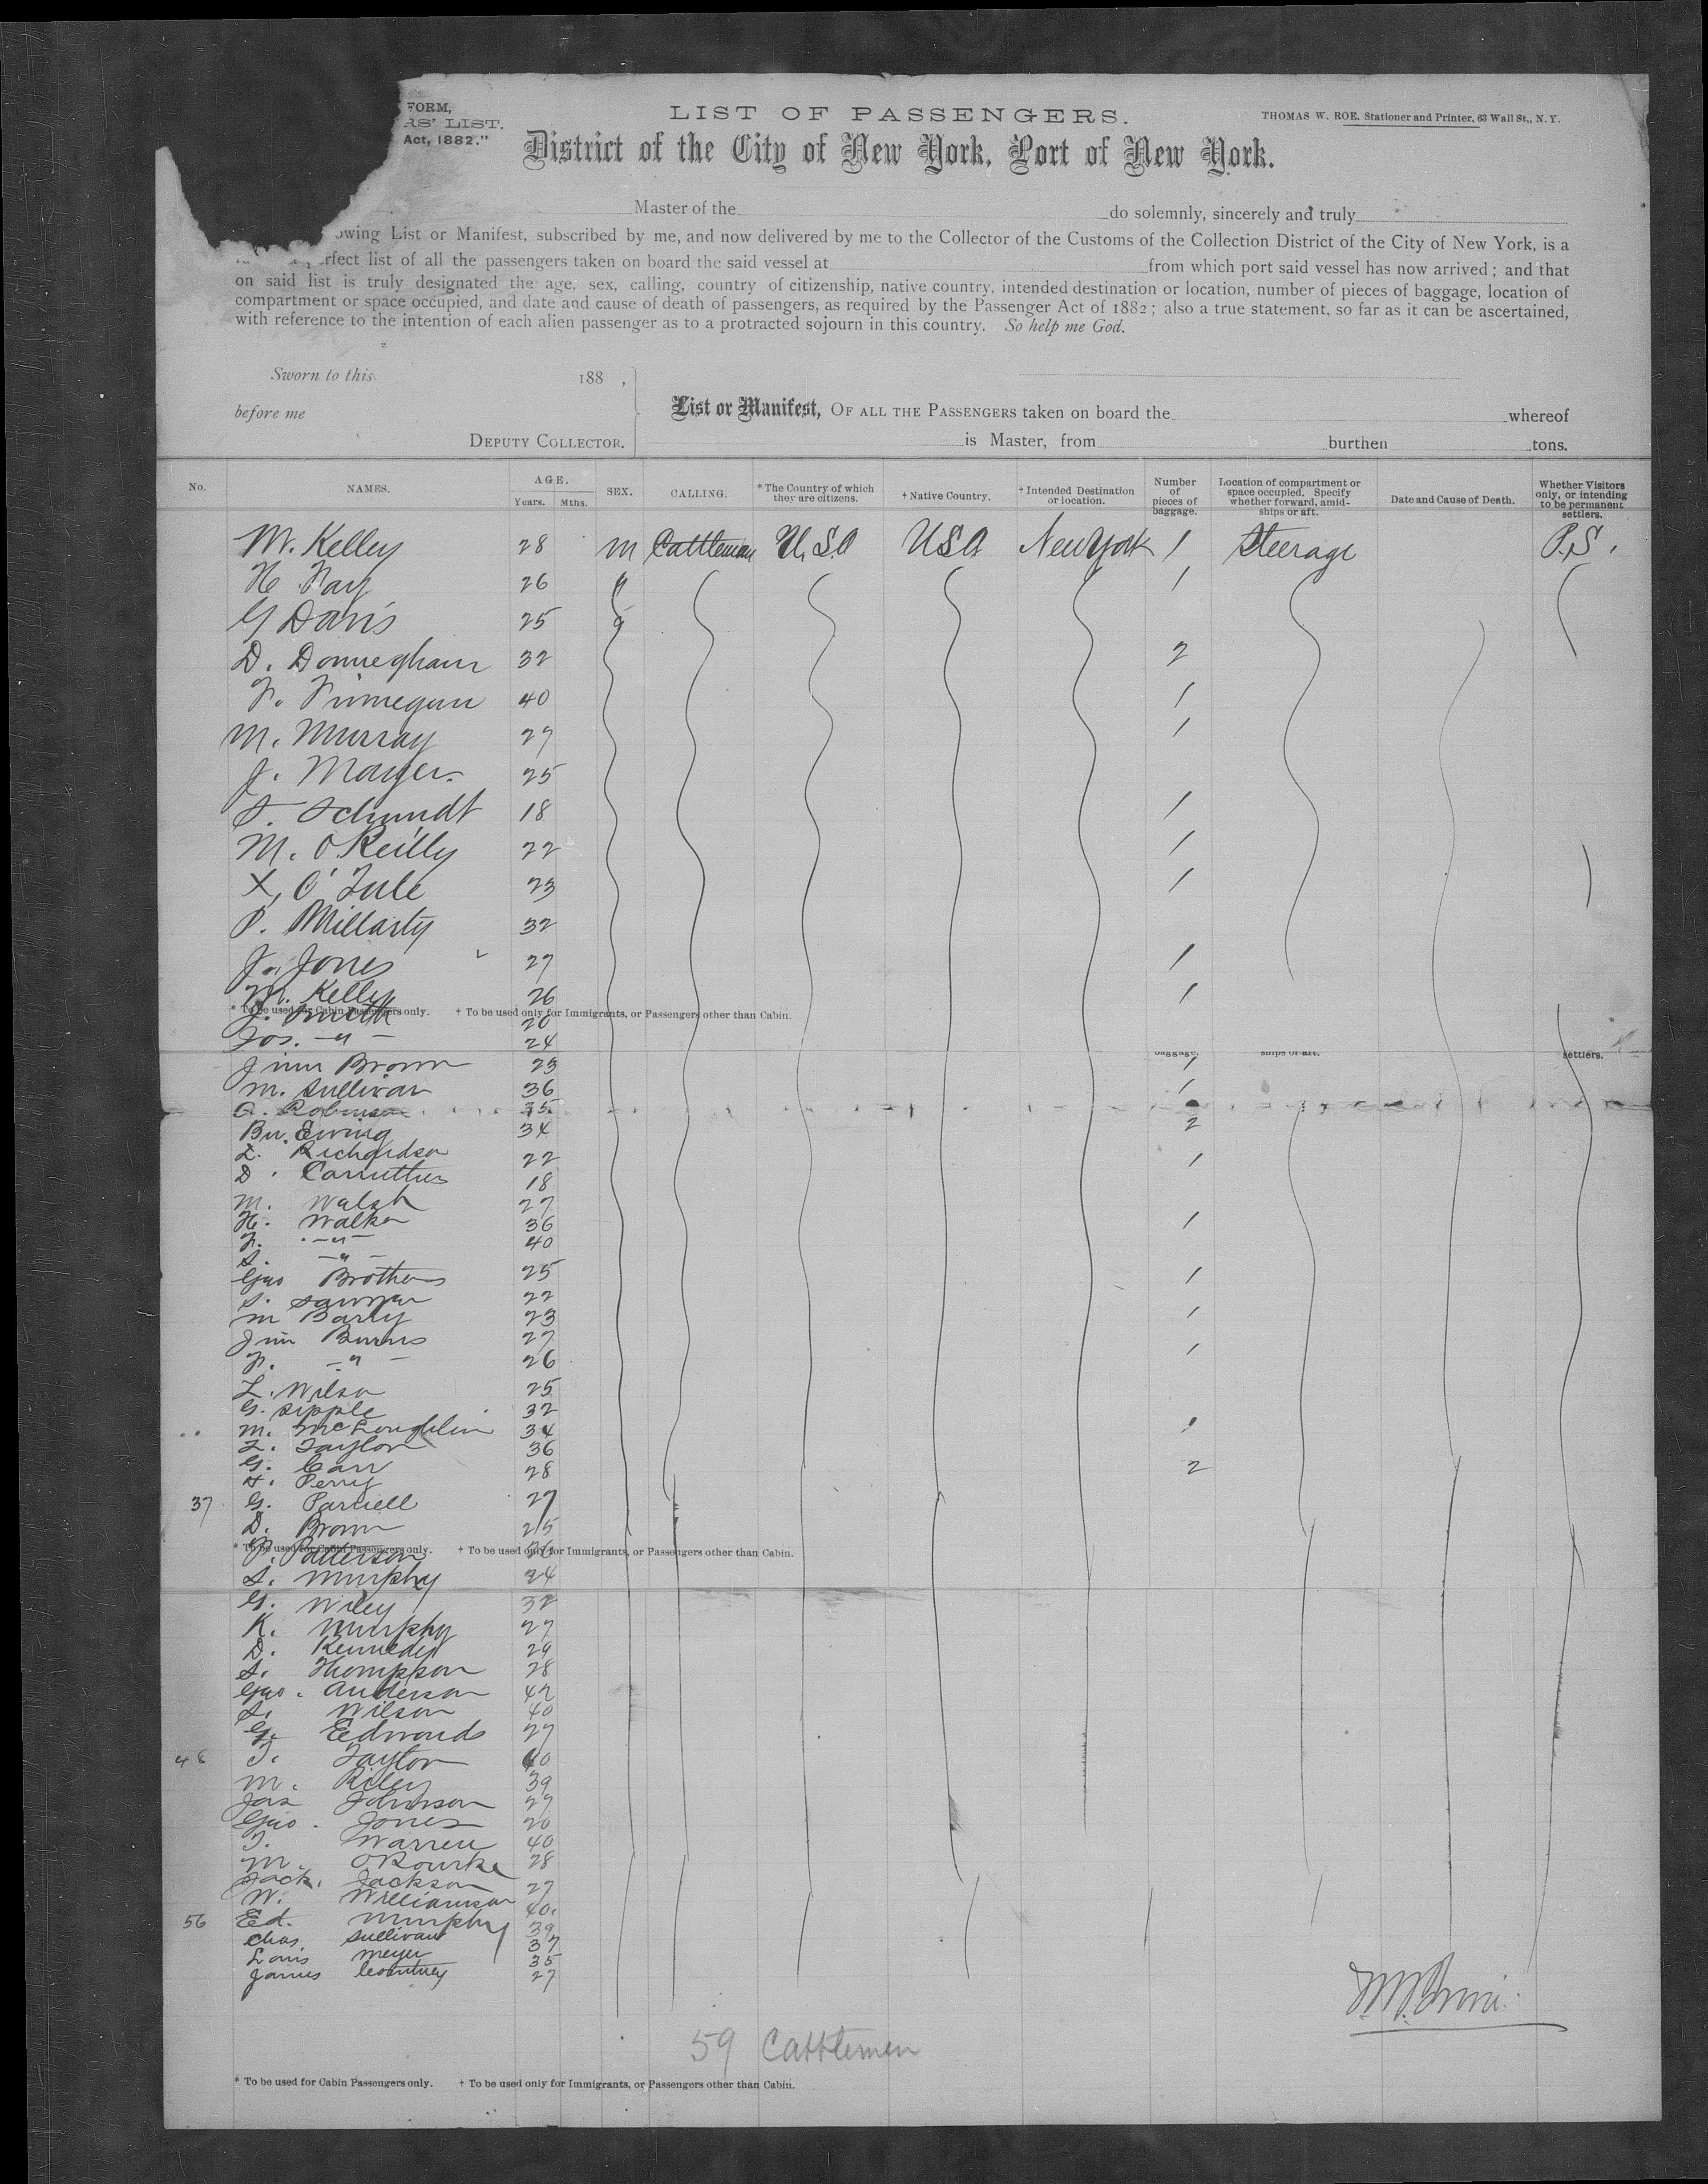 FORM,
RS' LIST.
Act, 1882."
LIST OF PASSENGERS.
THOMAS W. ROE, Stationer and Printer, 63 Wall St., N. Y.
District of the City of New York, Port of New York.
Master of the do solemnly, sincerely and truly
owing List or Manifest, subscribed by me, and now delivered by me to the Collector of the Customs of the Collection District of the City of New York, is a
rfect list of all the passengers taken on board the said vessel at from which port said vessel has now arrived; and that
on said list is truly designated the age, sex, calling, country of citizenship, native country, intended destination or location, number of pieces of baggage, location of
compartment or space occupied, and date and cause of death of passengers, as required by the Passenger Act of 1882; also a true statement, so far as it can be ascertained,
with reference to the intention of each alien passenger as to a protracted sojourn in this country. So help me God.
Sworn to this 188 ,
before me
DEPUTY COLLECTOR.
List or Manifest, OF ALL THE PASSENGERS taken on board the whereof
is Master, from burthen tons.
No. NAMES. AGE. Years. Mths. SEX. CALLING. * The Country of which they are citizens. † Native Country. † Intended Destination or location. Number of pieces of baggage. Location of compartment or space occupied. Specify whether forward, amidships or aft. Date and Cause of Death. Whether Visitors only, or intending to be permanent settlers.
M. Kelley 28 m Cattleman U.S.A USA New York 1 Steerage P.S.
H Fay 26 " 1
G Davis 25 "
D. Donneghan 32 2
F. Finnegan 40 1
M. Murray 27 1
J. Mayer. 25
S. Schmidt 18 1
M. O'Reilly 22 1
X, O'Tule 23 1
P. Millarty 32
J. Jones 27 1
M. Kelley 26 1
* To be used for Cabin Passengers only. † To be used only for Immigrants, or Passengers other than Cabin.
J. Smith 20
Jos. -"- 24
baggage. ships or aft. settlers.
Jim Brown 23 1
M. Sullivan 36 1
A. Robinson 35
Ewing 34 2
L. Richardson 22 1
D. Carruthers 18
M. Walsh 27
H. Walker 36 1
F. -"- 40
S. -"-
Geo Brothers 25 1
S. Sawyer 22
M Barry 23 1
Jim Burns 27
F. -"- 26 1
L. Wilson 25
G. Sipple 32
M. McLoughlin 34 1
L. Taylor 36
G. Carr 28 2
Perry
37 G. Parnell 27
D. Brown 25
* To be used for Cabin Passengers only. † To be used only for Immigrants, or Passengers other than Cabin.
P. Patterson
S. Murphy 24
G. Wiley 32
K. Murphy 27
D. Kennedy 29
S. Thompson 28
Geo. Anderson 42
S. Wilson 40
G. Edwards 27
48 T. Taylor 40
M. Riley 39
Jas Johnson 27
Geo. Jones 20
T. Warren 40
M. O'Rourke 28
Jack. Jackson 27
W. Williamson 40.
56 Ed. Murphy 39
Chas. Sullivan 37
Louis Meyer 35
James Courtney 27
59 Cattlemen
* To be used for Cabin Passengers only. † To be used only for Immigrants, or Passengers other than Cabin.